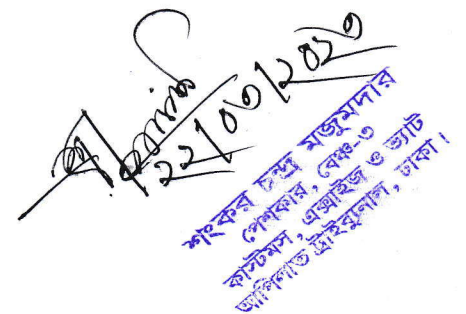 ২২/০৩/২০২৩
শংকর চন্দ্র মজুমদার
পেশকার, বেঞ্চ-৩
কাস্টমস, এক্সাইজ ও ভ্যাট
আপিলাত ট্রাইব্যুনাল, ঢাকা।